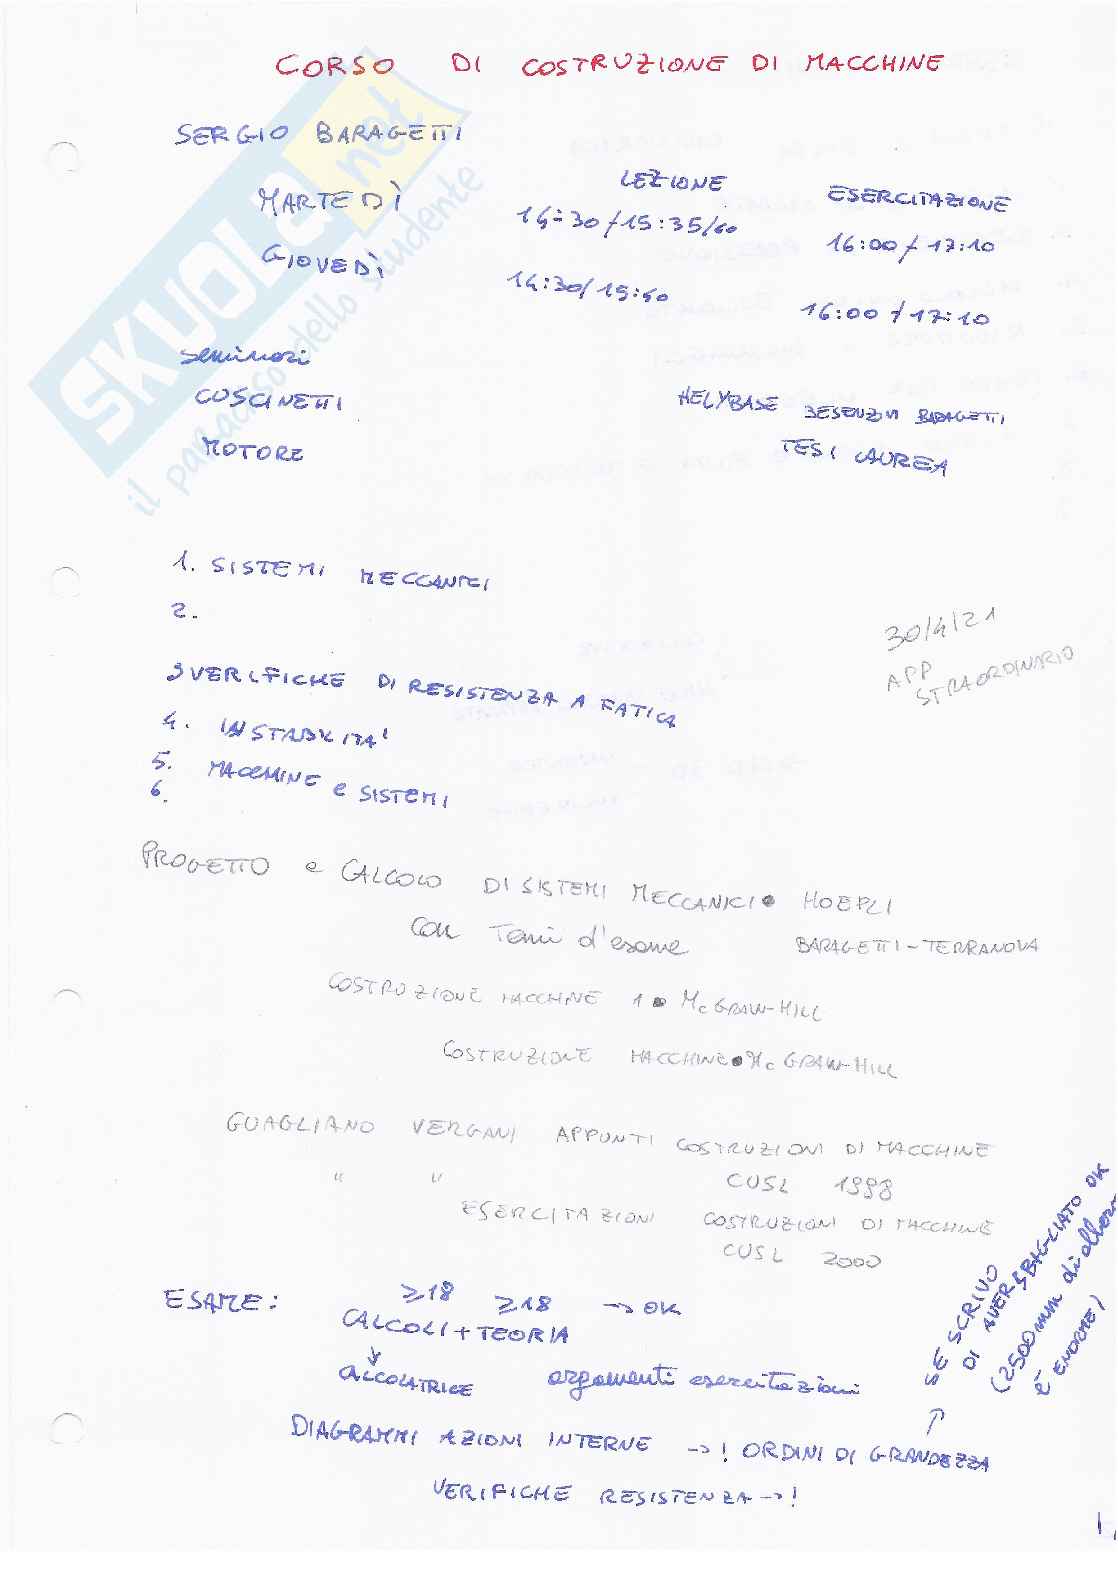 CORSO DI COSTRUZIONE DI MACCHINE
SERGIO BARAGETTI
LEZIONE ESERCITAZIONE
MARTEDÌ 14:30/15:35/40 16:00/17:10
GIOVEDÌ 14:30/15:40 16:00/17:10
seminari
CUSCINETTI HELYBASE BARAGETTI
MOTORE TESI LAUREA
1. SISTEMI MECCANICI
2.
30/4/21
APP
STRAORDINARIO
3 VERIFICHE DI RESISTENZA A FATICA
4. INSTABILITA'
5. MACCHINE e SISTEMI
6.
PROGETTO e CALCOLO DI SISTEMI MECCANICI • HOEPLI
con Temi d'esame BARAGETTI - TERRANOVA
COSTRUZIONE MACCHINE 1 • McGRAW-HILL
COSTRUZIONE MACCHINE • McGRAW-HILL
GUAGLIANO VERGANI APPUNTI COSTRUZIONI DI MACCHINE
" " CUSL 1998
ESERCITAZIONI COSTRUZIONI DI MACCHINE
CUSL 2000
ESAME: ≥18 ≥18 → OK
CALCOLI + TEORIA
CALCOLATRICE argomenti esercitazioni
SE SCRIVO
DI AVER SBAGLIATO OK
(2500mm di albero
è ENORME)
DIAGRAMMI AZIONI INTERNE → ! ORDINI DI GRANDEZZA
VERIFICHE RESISTENZA → !
SKUOLA.net
il paradiso dello studente